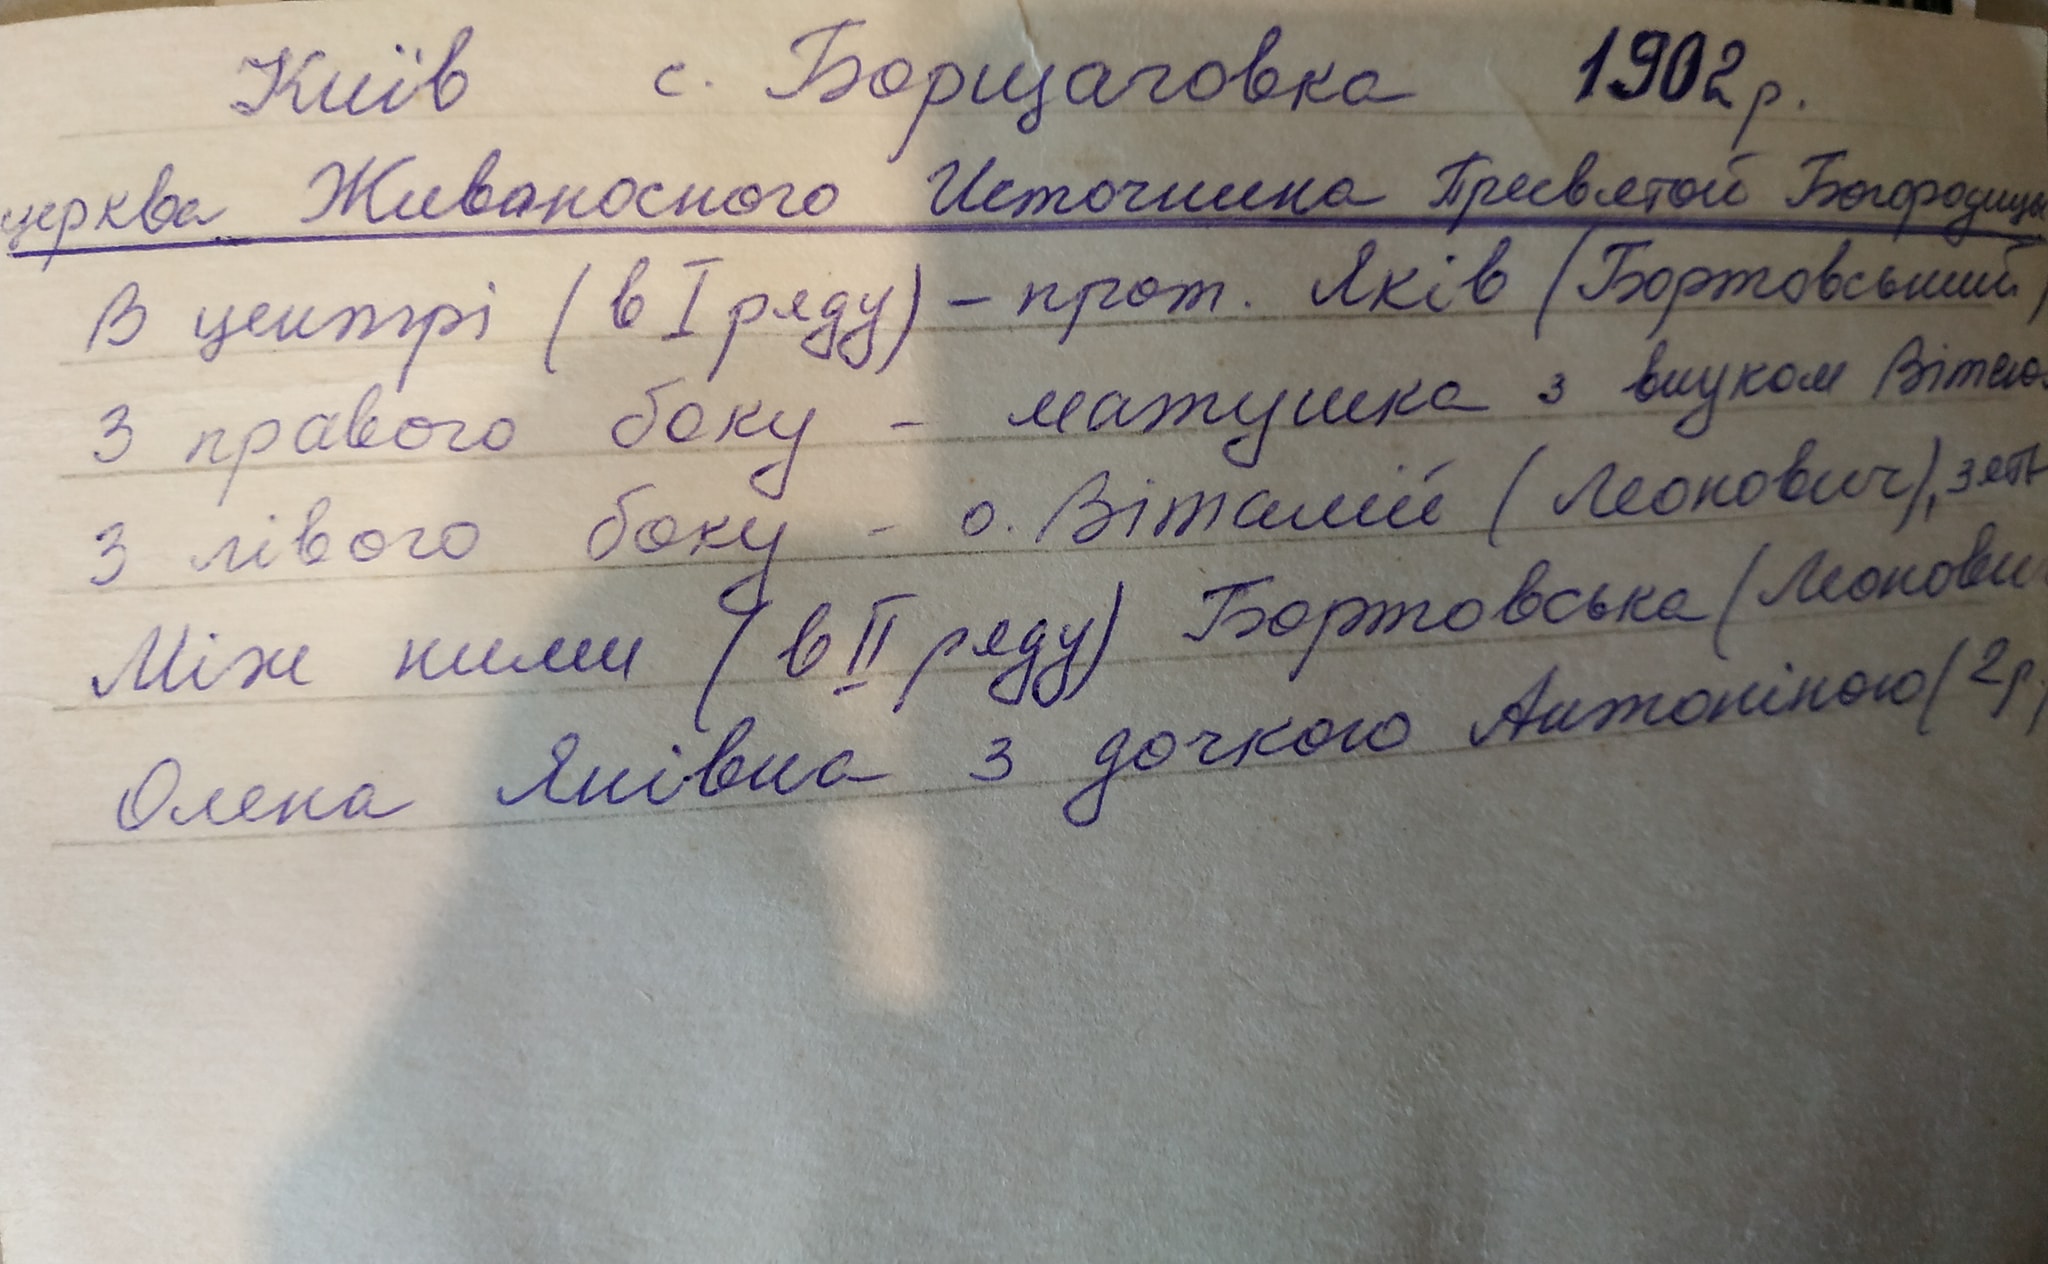 Київ с. Борщаговка 1902 р.
церква Живаносного Источника Пресвятой Богородицы
В центрі (в I ряду) – прот. Яків (Бортовський)
З правого боку – матушка з внуком Вітею
З лівого боку – о. Віталій (Леонович), зять
Між ними (в II ряду) Бортовська (Леонович
Олена Яківна з дочкою Антоніною (2 р.)